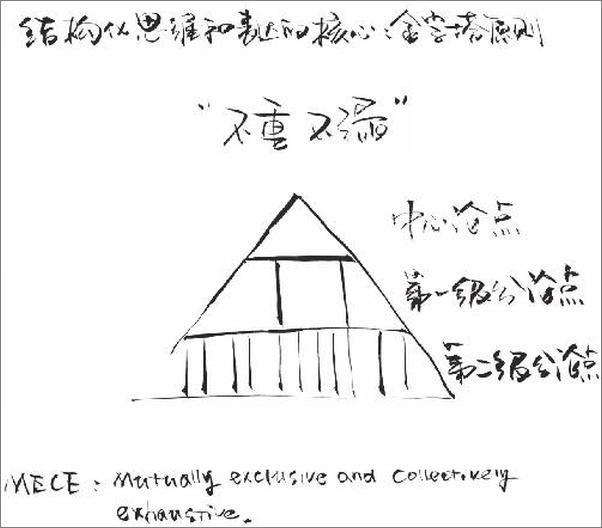 结构化思维和表达的核心：金字塔原则
“不重不漏”
中心论点
第一级分论点
第二级分论点
MECE: Mutually exclusive and collectively
exhaustive.